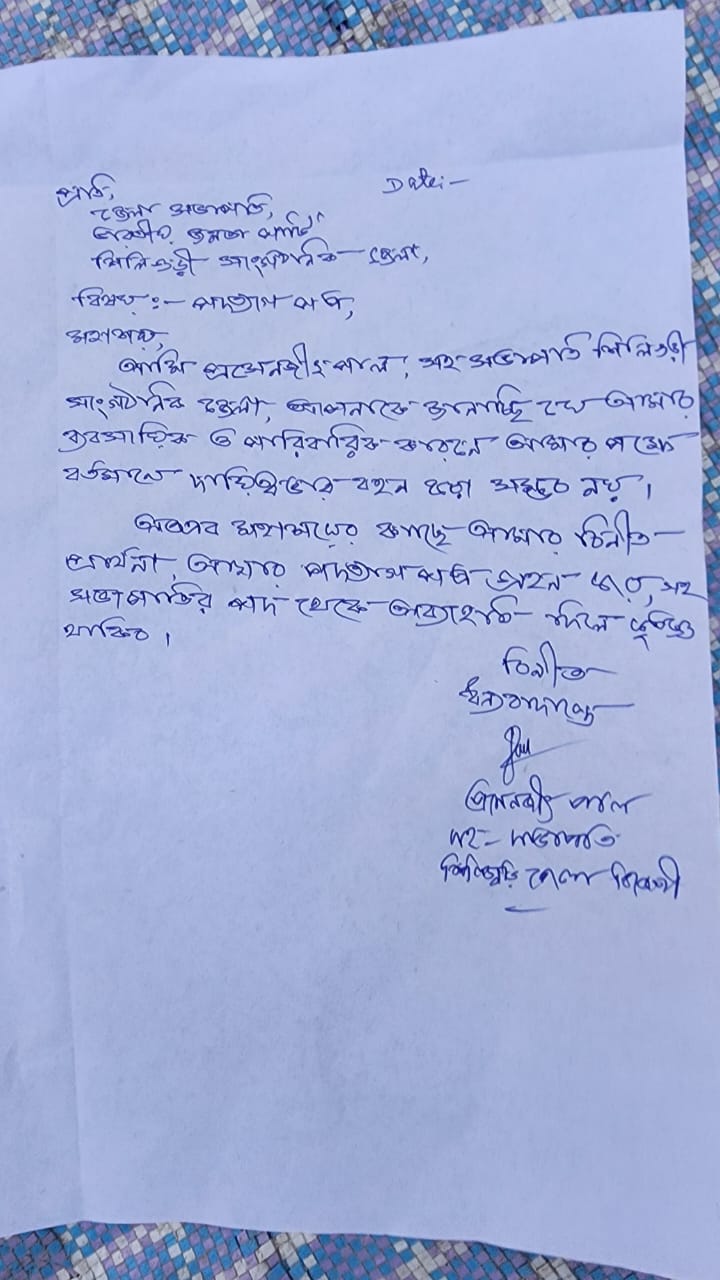 প্রতি,
Date:-
জেলা সভাপতি,
ভারতীয় জনতা পার্টি
শিলিগুড়ী সাংগঠনিক জেলা,
বিষয়:- পদত্যাগ পত্র,
মহাশয়,
আমি প্রসেনজীৎ পাল, সহ সভাপতি শিলিগুড়ী
সাংগঠনিক জেলা, আপনাকে জানাচ্ছি যে আমার
ব্যবসায়িক ও পারিবারিক কারনে আমার পক্ষে
বর্তমানে দায়িত্বভার বহন করা সম্ভব নয়।
অতএব মহাশয়ের কাছে আমার বিনীত
প্রার্থনা, আমার পদত্যাগ পত্র গ্রহন করে, সহ
সভাপতির পদ থেকে অব্যাহতি দিলে কৃতজ্ঞ
থাকিব।
বিনীত
ধন্যবাদান্তে
Paul
প্রসেনজীৎ পাল
সহ- সভাপতি
শিলিগুড়ি জেলা বিজেপী